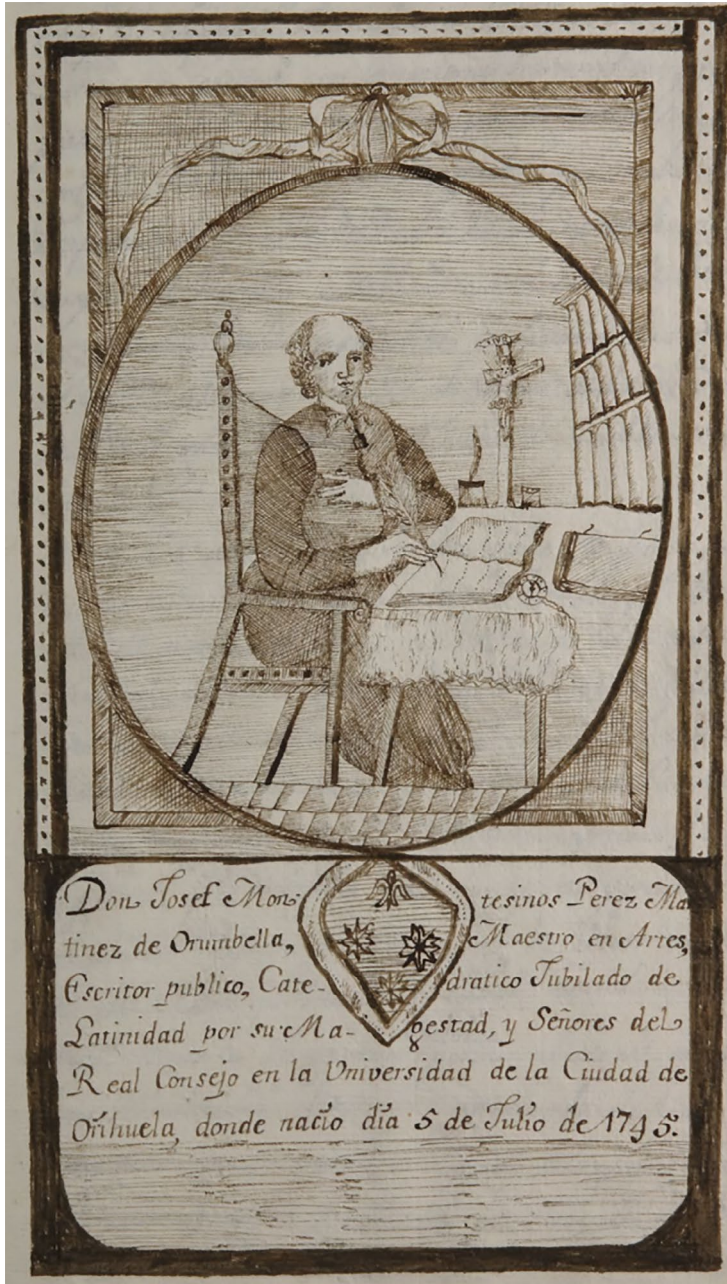 Don Josef Montesinos Perez Ma
tinez de Orumbella, Maestro en Artes,
Escritor publico, Catedratico Jubilado de
Latinidad por su Magestad, y Señores del
Real Consejo en la Universidad de la Ciudad de
Orihuela, donde nacio dia 5 de Julio de 1745.